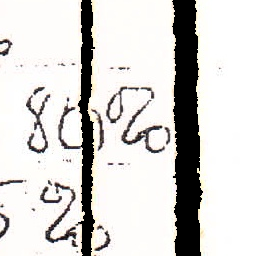 80%
5%